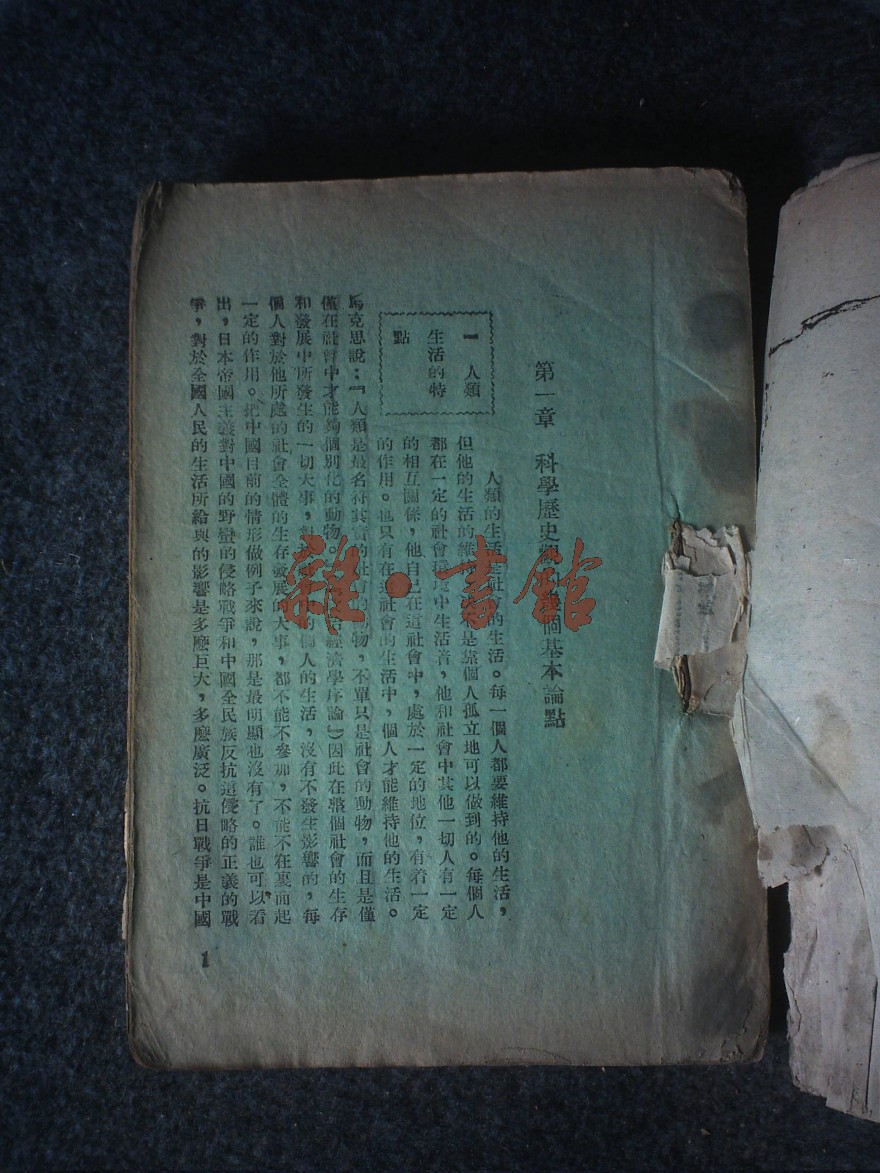 第一章 科學歷史觀 個基本論點
一 人類
生活的特
點
人類的生活是社 的生活。每一個人都要維持他的生活，
但他的生活的維持 不是靠個人孤立地可以做到的。每個人
都在一定的社會環境中生活着，他和社會中其他一切人有一定
的相互關係，他自己在這社會中，處於一定的地位，有着一定
的作用。也只有在 社會的生活中，個人才能維持他的生活。
馬克思說：「人類是最名符其實的社會的動物，不單只是社會的動物，而且是僅
僅在社會中才能夠個別化的動物。 經濟學序論）因此在整個社會的生存
和發展中所發生的一切大事，對 的個人的生活，沒有不發生影響的，每
個人對於他所處的社會全體的生存發展的大事，都不能不參加，不能不在裏面起
一定的作用。把中國目前的情形做例子來說，那是最明顯也沒有了。誰也可以看
出，日本帝國主義對中國的野蠻的侵略戰爭和中國全民族反抗這侵略的正義的戰
爭，對於全國人民的生活所給與的影響是多麽巨大，多麽廣泛。抗日戰爭是中國
1
雜·書館